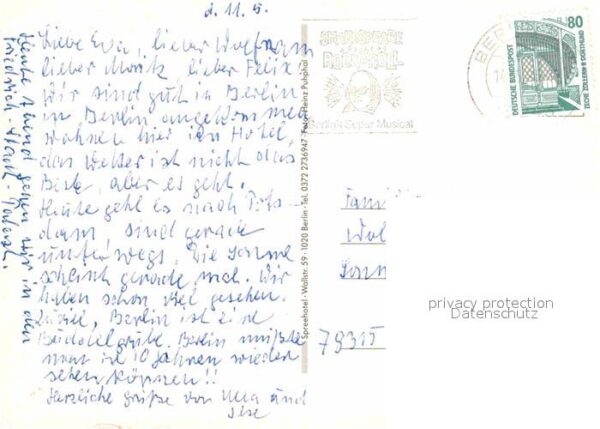 d. 11. 5.
Liebe Eva, lieber Wolfram
lieber Moritz, lieber Felix.
Wir sind gut in Berlin
in Berlin angekommen
wohnen hier im Hotel,
das Wetter ist nicht das
Beste, aber es geht.
Heute geht es nach Pots-
dam sind gerade
unterwegs. Die Sonne
scheint gerade mal. Wir
haben schon viel gesehen.
zuviel, Berlin ist eine
Berlin müßte
man in 10 Jahren wieder
sehen können!!
Herzliche Grüße von und
Ilse
Heute Abend gehen wir in den
Friedrich-Stadt-Palast.
Spreehotel · Wallstr. 59 · 1020 Berlin · Tel. 0372 2736947 · Foto: Heinz Puhphal
Berlin's Super Musical
BER
80
DEUTSCHE BUNDESPOST
ZECHE ZOLLERN II · DORTMUND
Fami
Wol
Sonn
79315
privacy protection
Datenschutz